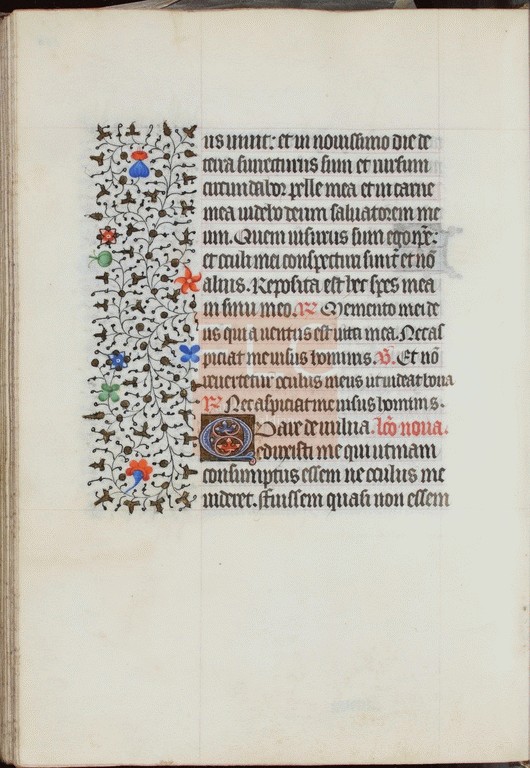 us viuit: et in nouissimo die de
terra surrecturus sum et rursum
circumdabor pelle mea et in carne
mea uidebo deum saluatorem me
um. Quem uisurus sum ego ip̄e:
et oculi mei conspecturi sunt et nō
alius. Reposita est hec spes mea
in sinu meo. R̄ Memento mei de
us quia uentus est uita mea. Nec as
piciat me uisus hominis. V̄. Et nō
reuertetur oculus meus ut uideat bona
R̄ Nec aspiciat me uisus hominis.
Quare de uulua lc̄o nona.
eduxisti me qui utinam
consumptus essem ne oculus me
uideret. ffuissem quasi non essem